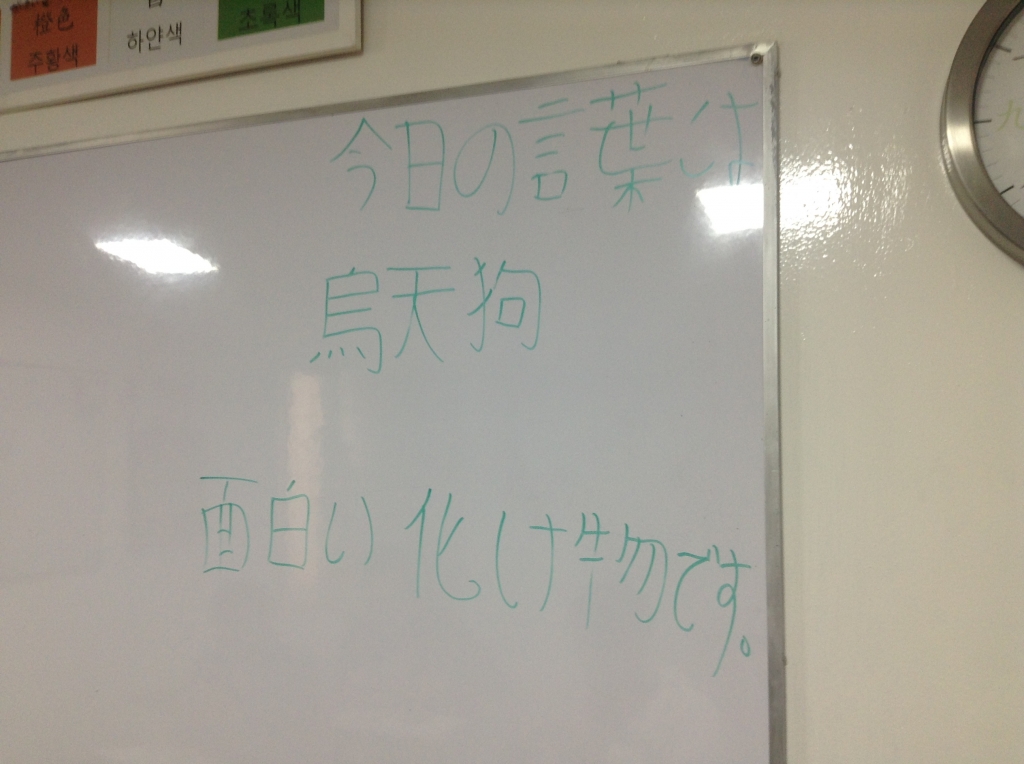 橙色
주황색
하얀색
초록색
今日の言葉は
烏天狗
面白い化け物です。
九